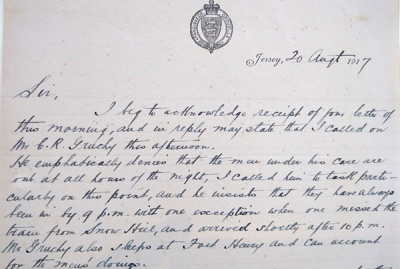 Jersey, 20 Augt 1917
Sir,
I beg to acknowledge receipt of your letter of
this morning, and in reply may state that I called on
Mr C. R. Gruchy this afternoon.
He emphatically denies that the men under his care are
out at all hours of the night, I called him to task parti-
cularly on this point, and he insists that they have always
been in by 9 p.m. with one exception when one messed the
train from Snow Hill, and arrived shortly after 10 p.m.
Mr Gruchy also sleeps at Fort Henry and can account
for the men's doings.